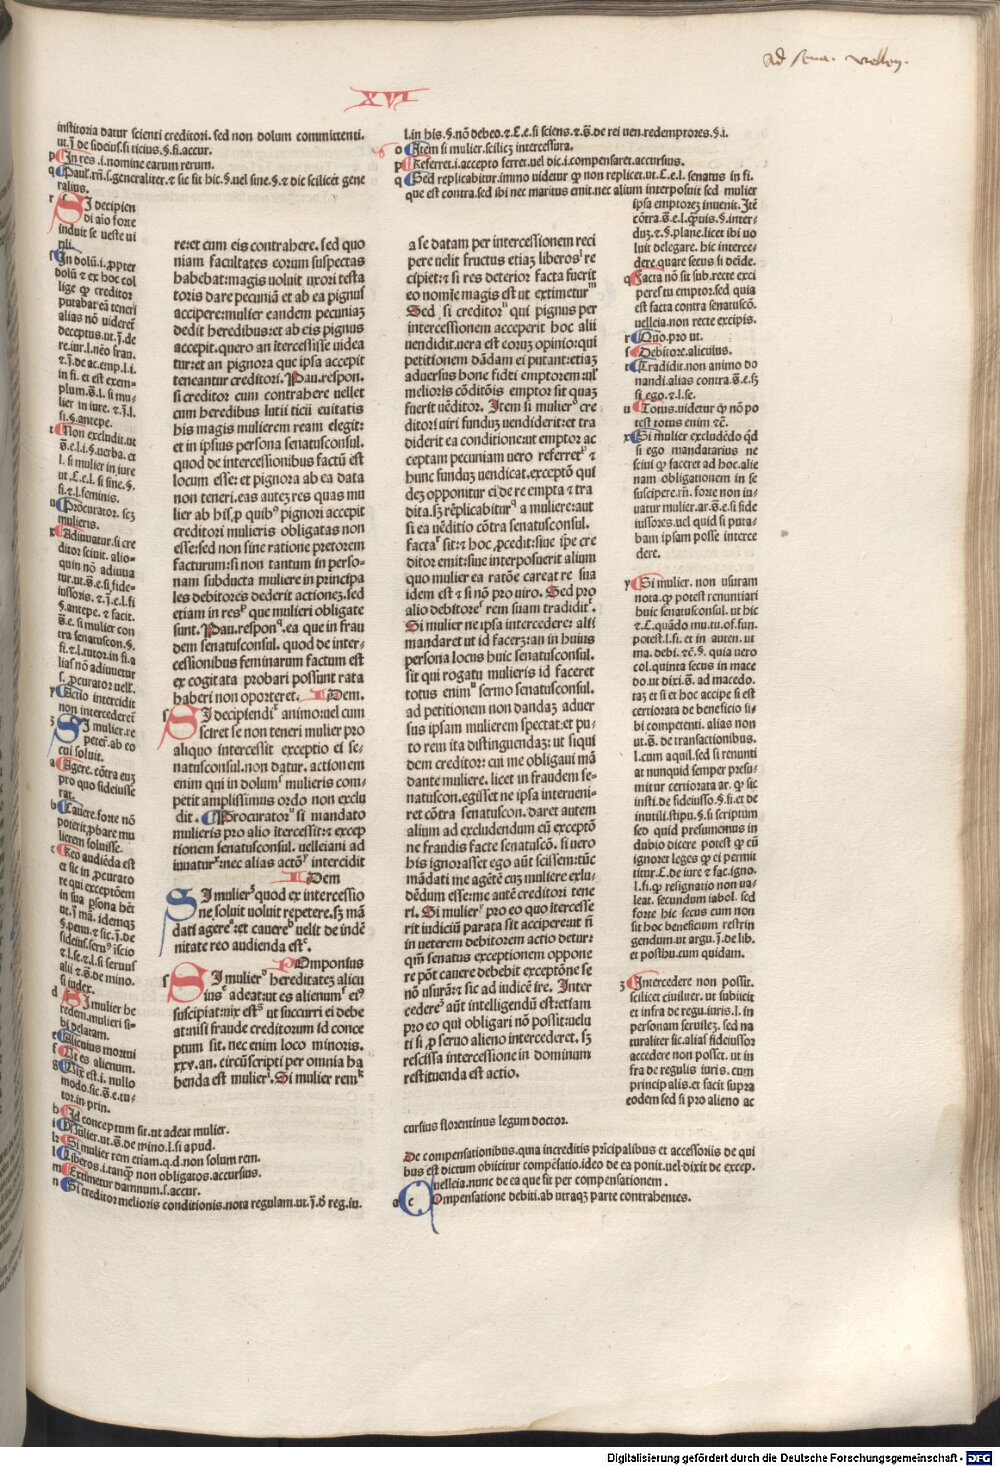 XVI
institoria datur scienti creditori. sed non dolum committenti.
ut.j̄.de fideiuss.si ticius.§.si.accur.
p In res.i.nomine earum rerum.
q Paul'.rn̄.s.generaliter.⁊ sic sit hic.§.uel sine.§.⁊ dic scilicet gene
ralius.
r SI decipien
di aīo forte
induit se ueste ui
rili.
s In dolū.i.ꝓpter
dolū ⁊ ex hoc col
lige ꝙ creditor
putabat eā teneri
alias nō uideret᷑
deceptus.ut.j̄.de
re.iur.l.nēo frau.
⁊.j̄.de ac.emp.l.i.
in fi. et est exem-
plum.s̄.l.si mu-
lier in iure.⁊.j̄.l.
si.§.antepe.
t Non excludit.ut
s̄.e.l.i.§.uerba.et
l.si mulier in iure
ut.C.e.l.si sine.§.
fi.⁊.l.feminis.
u Procurator.scꝫ
mulieris.
x Adiuuatur.si cre
ditor sciuit. alio-
quin nō adiuua
tur.ut.s̄.e.si fide-
iussoris.⁊.j̄.e.l.si
§.antepe.⁊ facit.
s̄.e.si mulier con
tra senatuscon.§.
fi.⁊.l.tutor.in fi.a
lias nō adiuuetur
s.ꝓcurator uell'.
y Actio intercidit
non intercederet᷑
z SI mulier.re
peter.ab eo
cui soluit.
a Agere.cōtra euꝫ
pro quo fideiusse
rat.
b Cauere.forte nō
poterit ꝓbare mu
lierem soluisse.
c Reo audiēda est
et sic in ꝓcurato
re qui exceptōem
in sua ꝑsona hēt
ut.j̄.mā.idemqꝫ
§.penu.⁊ sic.j̄.de
fideius.seruꝰ īscio
⁊.l.se.⁊.l.si seruus
alii ⁊.s̄.de mino.
si iudex.
d SI mulier he
redem.mulieri si-
bi delatam.
e Alicuius mortui
f Ut es alienum.
g Uix est.i.nullo
modo.sic.s̄.e.tu-
tor.in prin.
h Id conceptum sit.ut adeat mulier.
i Mulier.ut.s̄.de mino.l.si apud.
k Si mulier rem etiam.q.d.non solum rem.
l Liberos.i.tanqꝫ non obligatos.accursius.
m Extimetur damnum.s.accur.
n Si creditor melioris conditionis.nota regulam.ut.j̄.ð reg.iu.
re:et cum eis contrahere.sed quo
niam facultates eorum suspectas
habebat:magis uoluit uxori testa
toris dare pecuniā et ab ea pignus
accipere:mulier eandem pecuniaꝫ
dedit heredibus:et ab eis pignus
accepit.quero an ītercessisse uidea
tur:et an pignora que ipsa accepit
teneantur creditori. Pau.respon.
si creditor cum contrahere uellet
cum heredibus lutii ticii euitatis
his magis mulierem ream elegit:
et in ipsius persona senatusconsul.
quod de intercessionibus factū est
locum esse: et pignora ab ea data
non teneri.eas auteꝫ res quas mu
lier ab his,ꝓ quibꝰ pignori accepit
creditori mulieris obligatas non
esse:sed non sine ratione pretorem
facturum:si non tantum in perso-
nam subducta muliere in principa
les debitores dederit actioneꝫ.sed
etiam in res que mulieri obligate
sunt. Pau.respon.ea que in frau
dem senatusconsul.quod de inter-
cessionibus feminarum factum est
ex cogitata probari possunt rata
haberi non oportere. IDem.
SI decipiendi animo:uel cum
sciret se non teneri mulier pro
aliquo intercessit exceptio ei se-
natusconsul.non datur. actionem
enim qui in dolum mulieris com-
petit amplissimus ordo non exclu
dit. Procurator si mandato
mulieris pro alio ītercessit:⁊ excep
tionem senatusconsul.uelleiani ad
iuuatur:nec alias actō intercidit
IDem
SI mulier quod ex intercessio
ne soluit uoluit repetere.sꝫ mā
dati agere:et cauere uelit de indē
nitate reo audienda est.
POmponius
SI mulier hereditateꝫ alicu
ius adeat:ut es alienum eiꝰ
suscipiat:uix est ut succurri ei debe
at:nisi fraude creditorum id conce
ptum sit.nec enim loco minoris.
xxv.an.circūscripti per omnia ha
benda est mulier. Si mulier rem
ad sena. velley.
l.in his.§.nō debeo.⁊.C.e.si sciens.⁊.s̄.de rei uen.redemptores.§.i.
o Item si mulier.scilicꝫ intercessura.
p Referret.i.accepto ferret.uel dic.i.compensaret.accursius.
q Sed replicabitur.immo uidetur ꝙ non replicet.ut.C.e.l.senatus in fi.
que est contra.sed ibi nec maritus emit.nec alium interposuit sed mulier
ipsa emptoreꝫ inuenit.Itē
cōtra.s̄.e.l.quis.§.inter-
duꝫ.⁊.§.plane.licet ibi uo
luit delegare.hic interce-
dere.quare secus.si deīde.
q Facta nō sit sub.recte exci
peret᷑ tu emptor.sed quia
est facta contra senatuscō.
uelleia.non recte excipis.
r Quo.pro ut.
s Debitore.alicuius.
t Tradidit.non animo do
nandi.alias contra.s̄.e.sꝫ
si ego.⁊.l.se.
u Totus.uidetur ꝙ nō po
test totus enim ⁊c̄.
x Si mulier excludēdo qd̄
si ego mandatarius ne
sciui ꝙ faceret ad hoc.alie
nam obligationem in se
suscipere.rn̄.forte non iu-
uatur mulier.ar.s̄.e.si fide
iussores.uel quid si puta-
bam ipsam posse interce
dere.
y Si mulier. non usuram
nota.ꝙ potest renuntiari
huic senatusconsul.ut hic
⁊.C.quādo mu.tu.of.fun.
potest.l.fi.et in auten.ut
ma.debi.⁊c̄.§.quia uero
col.quinta secus in mace
do.ut dixi.s̄.ad macedo.
taꝫ et si et hoc accipe si est
certiorata de beneficio si-
bi competenti.alias non
ut.s̄.de transactionibus.
l.cum aquil.sed si renunti
at nunquid semper presu-
mitur certiorata ar.ꝙ sic
insti.de fideiusso.§.fi.et de
inutili.stipu.§.si scriptum
sed quid presumemus in
dubio dicere potest ꝙ cū
ignoret leges ꝙ ei permit
titur.C.de iure ⁊ fac.igno.
l.fi.ꝙ resignatio non ua-
leat. secundum iabol.sed
forte hic secus cum non
sit hoc beneficium restrin
gendum.ut argu.j̄.de lib.
et posthu.cum quidam.
z Intercedere non possit.
scilicet ciuiliter.ut subiicit
et infra de regu.iuris.l.in
personam seruileꝫ.sed na
turaliter sic.alias fideiussor
accedere non posset.ut in
fra de regulis iuris.cum
principalis.et facit supra
eodem sed si pro alieno ac
a se datam per intercessionem reci
pere uelit fructus etiaꝫ liberos re
cipiet:⁊ si res deterior facta fuerit
eo nomīe magis est ut extimetur
Sed si creditor qui pignus per
intercessionem acceperit hoc alii
uendidit.uera est eorum opinio:qui
petitionem dādam ei putant:etiaꝫ
aduersus bone fidei emptorem:ul'
melioris cōditōis emptor sit quaꝫ
fuerit uēditor. Item si mulier cre
ditori uiri funduꝫ uendiderit:et tra
diderit ea conditione:ut emptor ac
ceptam pecuniam uero referret ⁊
hunc funduꝫ uendicat.exceptō qui
deꝫ opponitur ei de re empta ⁊ tra
dita.sꝫ replicabitur a muliere:aut
si ea uēditio cōtra senatusconsul.
facta sit:⁊ hoc ꝓcedit:siue ipē cre
ditor emit:siue interposuerit alium
quo mulier ea ratōe careat re sua
idem est ⁊ si nō pro uiro. Sed pro
alio debitore rem suam tradidit.
Si mulier ne ipsa intercedere: alii
mandaret ut id facerꝫ:an in huius
persona locus huic senatusconsul.
sit qui rogatu mulieris id faceret
totus enim sermo senatusconsul.
ad petitionem non dandaꝫ aduer
sus ipsam mulierem spectat:et pu-
to rem ita distinguendaꝫ: ut siqui
dem creditor: cui me obligaui mā
dante muliere. licet in fraudem se-
natuscon.egisset ne ipsa interueni-
ret cōtra senatuscon.daret autem
alium ad excludendum eū exceptō
ne fraudis facte senatuscō.si uero
his ignorasset ego aūt scissem:tūc
mādati me agētē cuꝫ muliere exlu-
dēdum esse:me autē creditori tene
ri. Si mulier pro eo quo ītercesse
rit iudiciū parata sit accipere:ut n̄
in ueterem debitorem actio detur:
qm̄ senatus exceptionem oppone
re pōt cauere debebit exceptōne se
nō usurā:⁊ sic ad iudicē ire. Inter
cedere aūt intelligendū est:etiam
pro eo qui obligari nō possit:uelu
ti si ꝓ seruo alieno intercederet.sꝫ
rescissa intercessione in dominum
restituenda est actio.
cursius florentinus legum doctor.
De compensationibus.quia increditis prīcipalibus et accessoriis de qui
bus est dictum obiicitur compēsatio.ideo de ea ponit.uel dixit de excep.
uelleia.nunc de ea que fit per compensationem.
a COmpensatione debiti.ab utraqꝫ parte contrahentes.
Digitalisierung gefördert durch die Deutsche Forschungsgemeinschaft - DFG